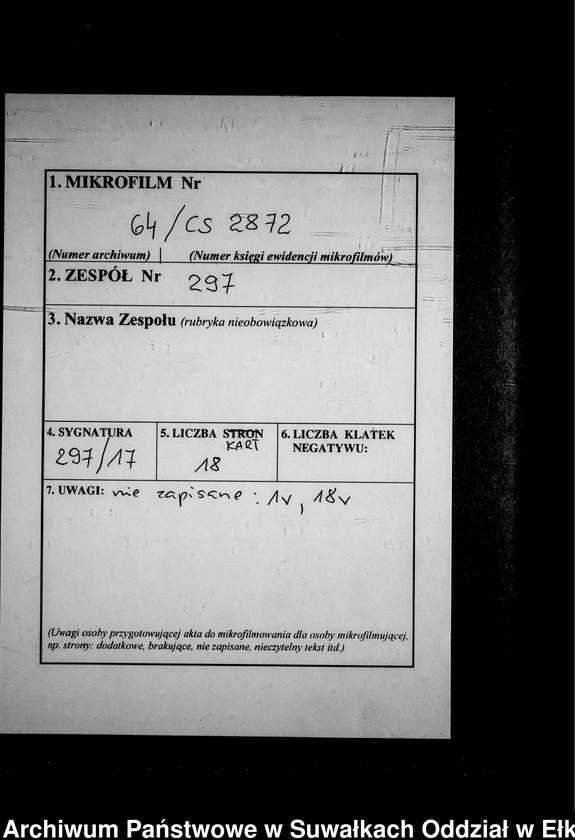 1. MIKROFILM Nr
64/CS 2872
(Numer archiwum) | (Numer księgi ewidencji mikrofilmów)
2. ZESPÓŁ Nr 297
3. Nazwa Zespołu (rubryka nieobowiązkowa)
4. SYGNATURA
297/17
5. LICZBA STRON
KART
18
6. LICZBA KLATEK
NEGATYWU:
7. UWAGI: nie zapisane : 1v, 18v
(Uwagi osoby przygotowującej akta do mikrofilmowania dla osoby mikrofilmującej,
np. strony: dodatkowe, brakujące, nie zapisane, nieczytelny tekst itd.)
Archiwum Państwowe w Suwałkach Oddział w Ełk